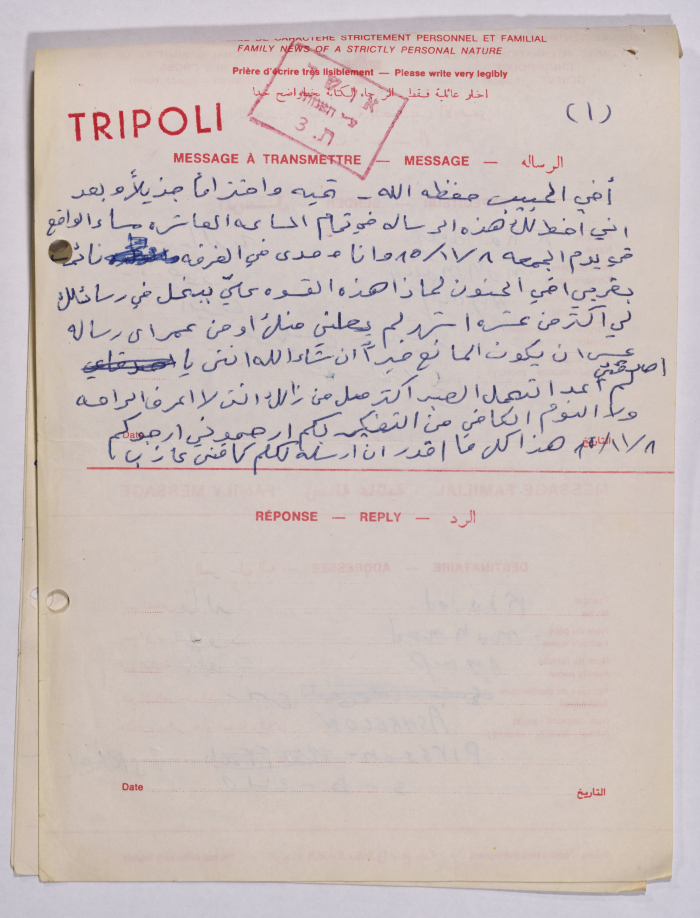 DE CARACTÈRE STRICTEMENT PERSONNEL ET FAMILIAL
FAMILY NEWS OF A STRICTLY PERSONAL NATURE
Prière d'écrire très lisiblement — Please write very legibly
اخبار عائلية فقط الرجاء الكتابة بخط واضح جدا
(١)
TRIPOLI
MESSAGE À TRANSMETTRE — MESSAGE — الرساله
أخي الحبيب حفظه الله - تحيه واحتراماً جزيلاً وبعد
اني اخط لك هذه الرساله في تمام الساعه العاشره مساء الواقع
في يوم الجمعه ٨/١١/٨٥ وانا وحدي في الغرفه
اخي الحنون لماذا هذه القسوه علي تبخل في رسائلك
لي اكثر من عشره اشهر لم يصلني منك او من عمر اي رساله
عسى ان يكون المانع خيراً ان شاء الله انني يا
لم أعد اتحمل الصبر اكثر من ذلك انني لا اعرف الراحه
ولا النوم الكافي من التفكير بكم ارحموني ارجوكم
Date التاريخ
٨/١١/٨٥ هذا كل ما اقدر ان ارسله لكم
RÉPONSE — REPLY — الرد
Date التاريخ